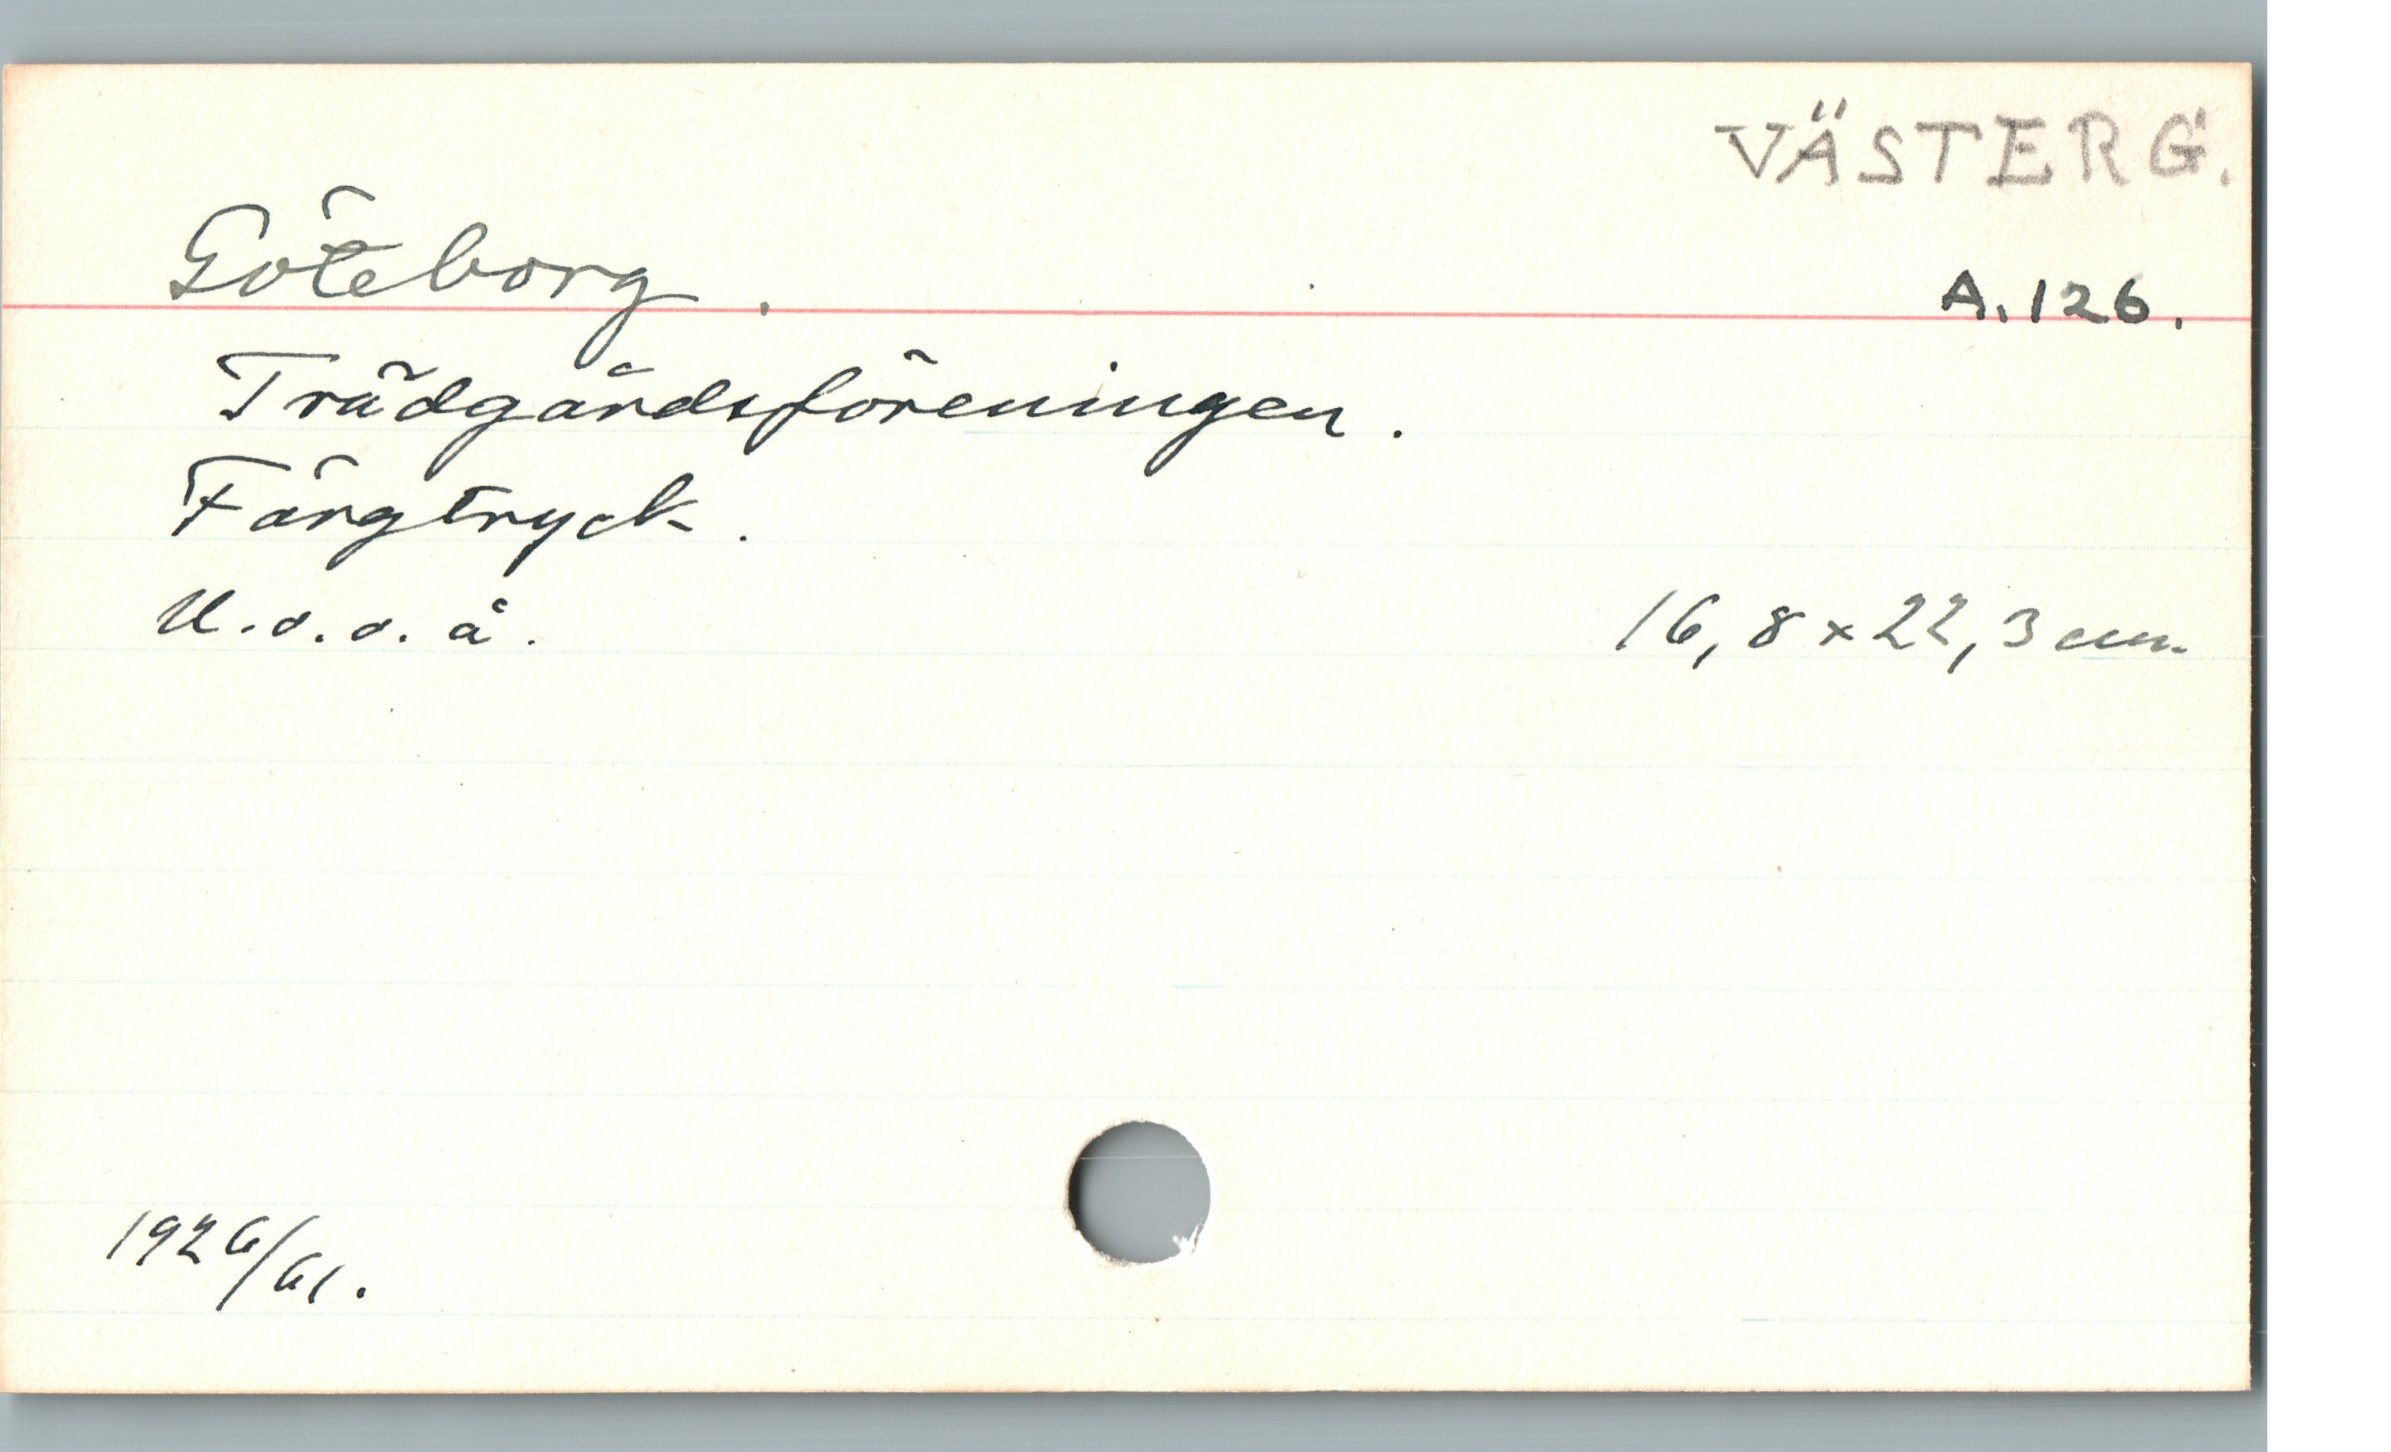 VÄSTERG.
Göteborg.
A.126.
Trädgårdsföreningen.
Färgtryck.
U.o.o.å.
16,8×22,3 cm.
1926/61.